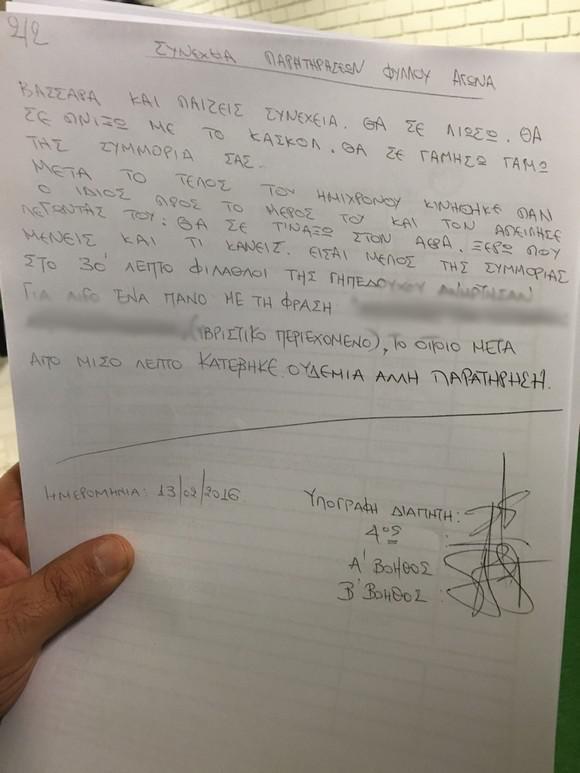 2/2
ΣΥΝΕΧΕΙΑ ΠΑΡΑΤΗΡΗΣΕΩΝ ΦΥΛΛΟΥ ΑΓΩΝΑ
ΒΑΣΣΑΡΑ ΚΑΙ ΠΑΙΖΕΙΣ ΣΥΝΕΧΕΙΑ. ΘΑ ΣΕ ΛΙΩΣΩ. ΘΑ
ΣΕ ΠΝΙΞΩ ΜΕ ΤΟ ΚΑΣΚΟΛ. ΘΑ ΣΕ ΓΑΜΗΣΩ ΓΑΜΩ
ΤΗΣ ΣΥΜΜΟΡΙΑ ΣΑΣ.
ΜΕΤΑ ΤΟ ΤΕΛΟΣ ΤΟΥ ΗΜΙΧΡΟΝΟΥ ΚΙΝΗΘΗΚΕ ΠΑΛΙ
Ο ΙΔΙΟΣ ΠΡΟΣ ΤΟ ΜΕΡΟΣ ΤΟΥ ΚΑΙ ΤΟΝ ΑΠΕΙΛΗΣΕ
ΛΕΓΟΝΤΑΣ ΤΟΥ: ΘΑ ΣΕ ΤΙΝΑΞΩ ΣΤΟΝ ΑΕΡΑ. ΞΕΡΩ ΠΟΥ
ΜΕΝΕΙΣ ΚΑΙ ΤΙ ΚΑΝΕΙΣ. ΕΙΣΑΙ ΜΕΛΟΣ ΤΗΣ ΣΥΜΜΟΡΙΑΣ
ΣΤΟ 30' ΛΕΠΤΟ ΦΙΛΑΘΛΟΙ ΤΗΣ ΓΗΠΕΔΟΥΧΟΥ ΑΝΗΡΤΗΣΑΝ
ΓΙΑ ΛΙΓΟ ΕΝΑ ΠΑΝΟ ΜΕ ΤΗ ΦΡΑΣΗ
(ΥΒΡΙΣΤΙΚΟ ΠΕΡΙΕΧΟΜΕΝΟ), ΤΟ ΟΠΟΙΟ ΜΕΤΑ
ΑΠΟ ΜΙΣΟ ΛΕΠΤΟ ΚΑΤΕΒΗΚΕ. ΟΥΔΕΜΙΑ ΑΛΛΗ ΠΑΡΑΤΗΡΗΣΗ.
ΗΜΕΡΟΜΗΝΙΑ: 13/02/2016
ΥΠΟΓΡΑΦΗ ΔΙΑΙΤΗΤΗ:
4ος :
Α' ΒΟΗΘΟΣ
Β' ΒΟΗΘΟΣ :